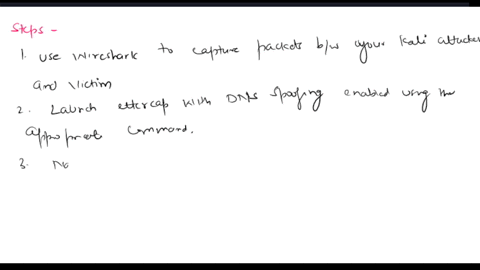 Steps -
1. Use Wireshark to capture packets b/w your Kali attacker
and Victim
2. Launch ettercap with DNS spoofing enabled using the
appropriate command.
3.